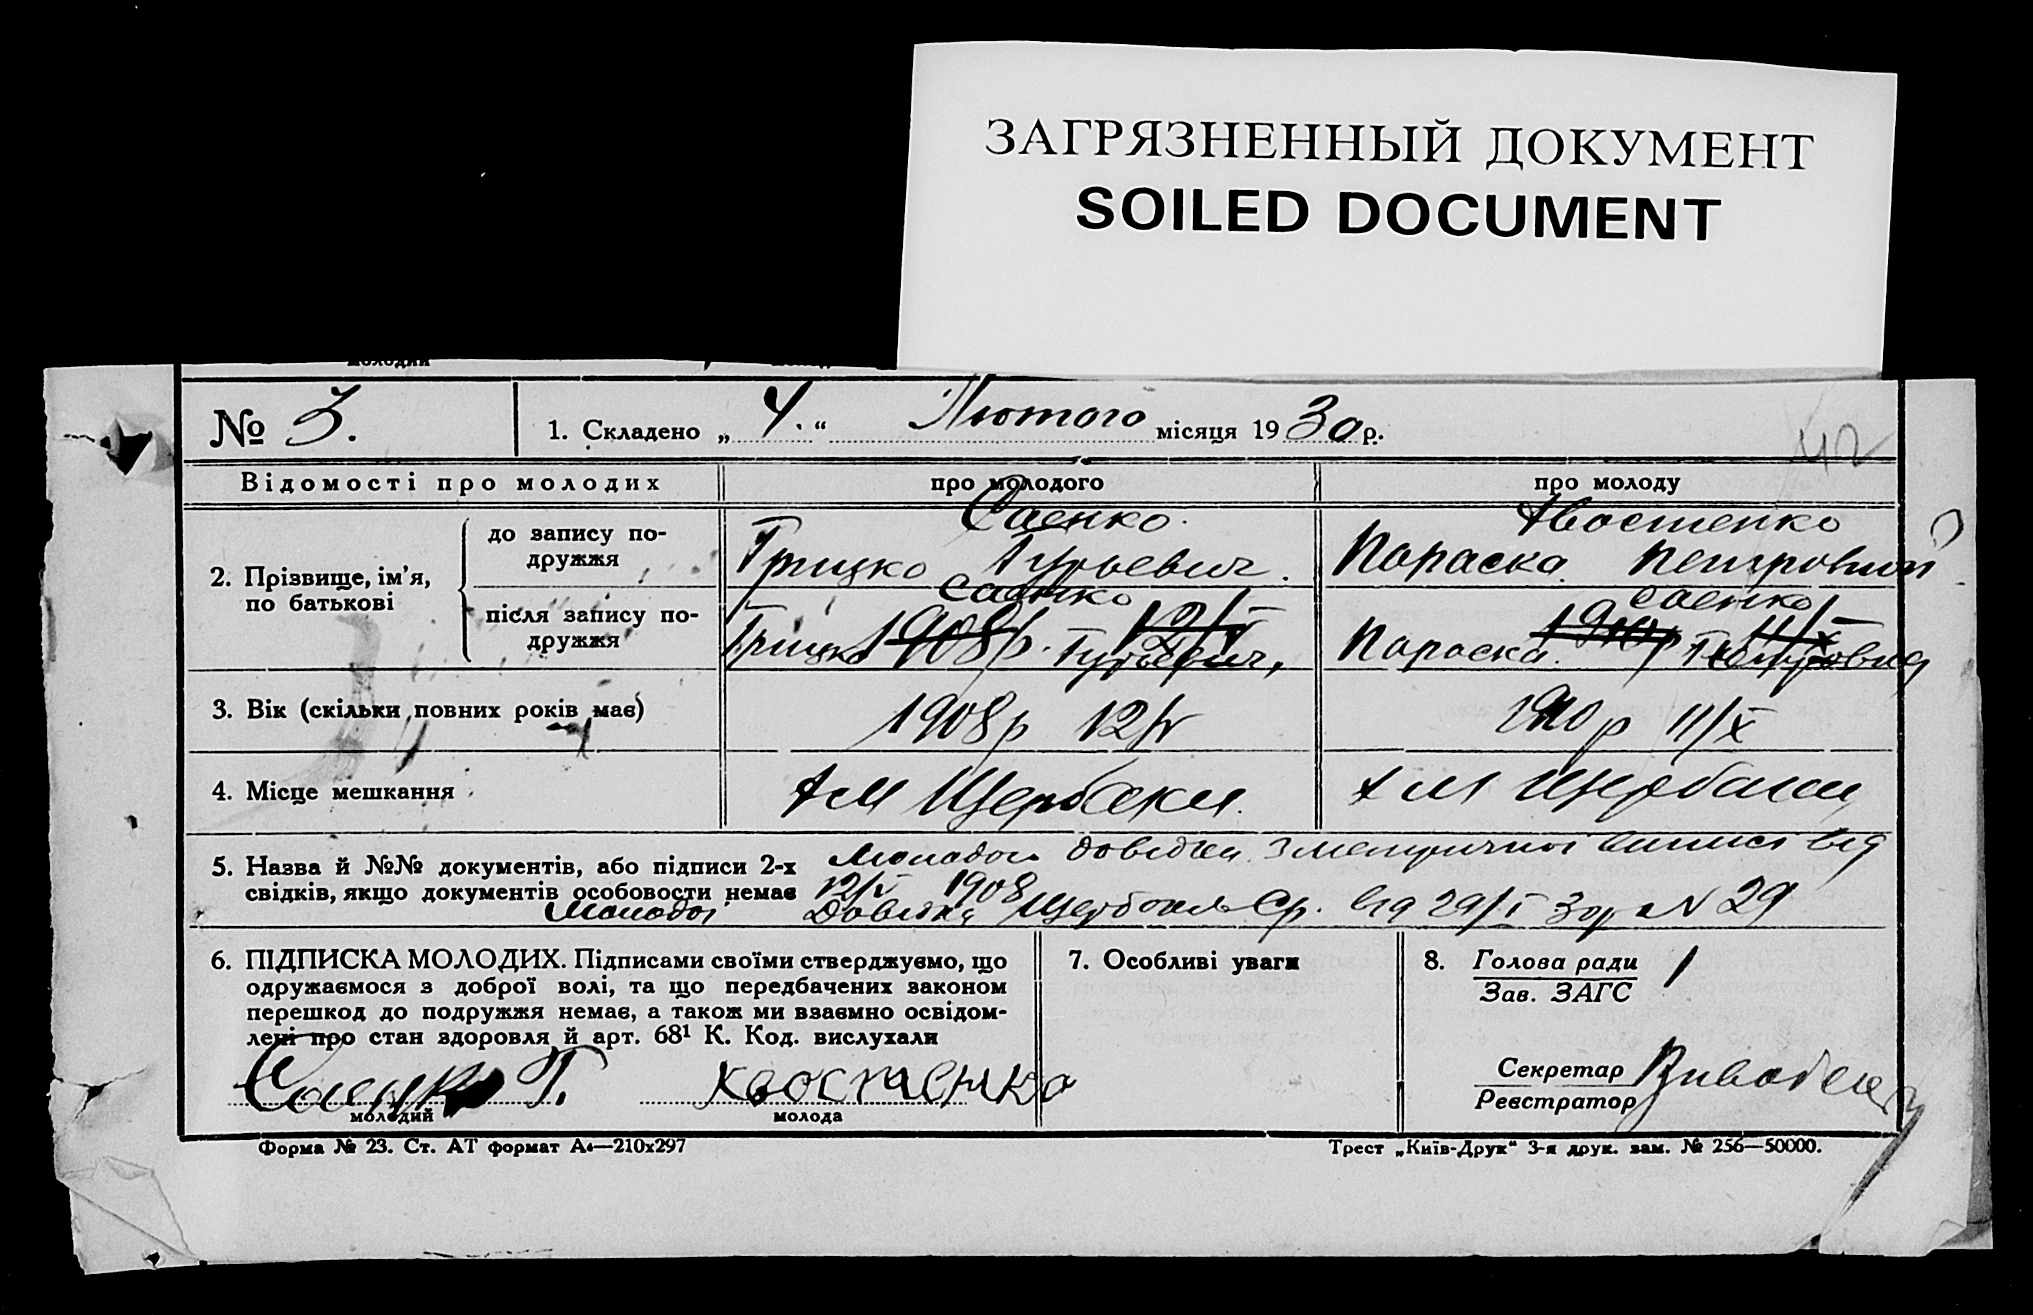 ЗАГРЯЗНЕННЫЙ ДОКУМЕНТ
SOILED DOCUMENT
№ 3. 1. Складено „ 4. “ Лютого місяця 1930 р.
42
Відомості про молодих про молодого про молоду
2. Прізвище, ім’я, по батькові
до запису подружжя
Саенко Хвостенко
Грицко Гурьевич. Параска Петровной
після запису подружжя
Саенко Саенко
1908р. 12/V 1910р 11/X
Грицко Гурьевич, Параска Петровна
3. Вік (скільки повних років має) 1908р 12/V 1910р 11/X
4. Місце мешкання х м Щербаки. х м Щербаки
5. Назва й №№ документів, або підписи 2-х Молодой довідка з метричної виписі від
свідків, якщо документів особовости немає 12/V 1908
Молодої Довідка Ср. від 29/I 30р № 29
6. ПІДПИСКА МОЛОДИХ. Підписами своїми стверджуємо, що
одружаємося з доброї волі, та що передбачених законом
перешкод до подружжя немає, а також ми взаємно освідом-
лені про стан здоровля й арт. 68¹ К. Код. вислухали
Саенко Г. хвостенко
молодий молода
7. Особливі уваги
8. Голова ради
Зав. ЗАГС
Секретар
Реєстратор
Форма № 23. Ст. АТ формат А₄—210х297
Трест „Київ-Друк“ 3-я друк. зам. № 256—50000.